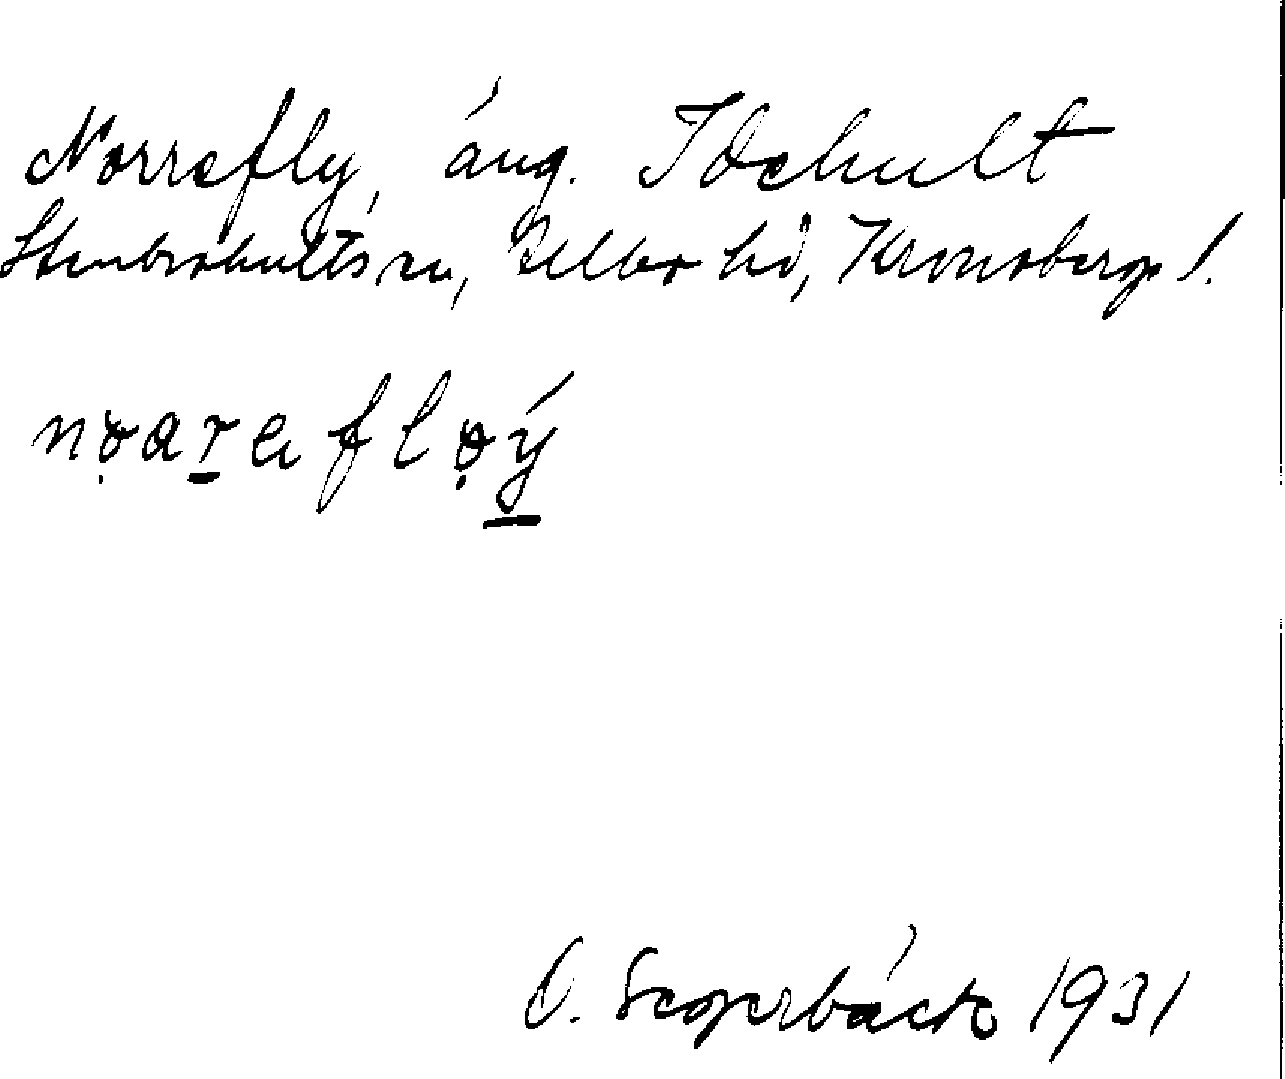 Norrefly, äng. Idehult
Stenbrohults sn, Allbo hd, Kronobergs l.
nọareflọý
O. Segerbäck 1931